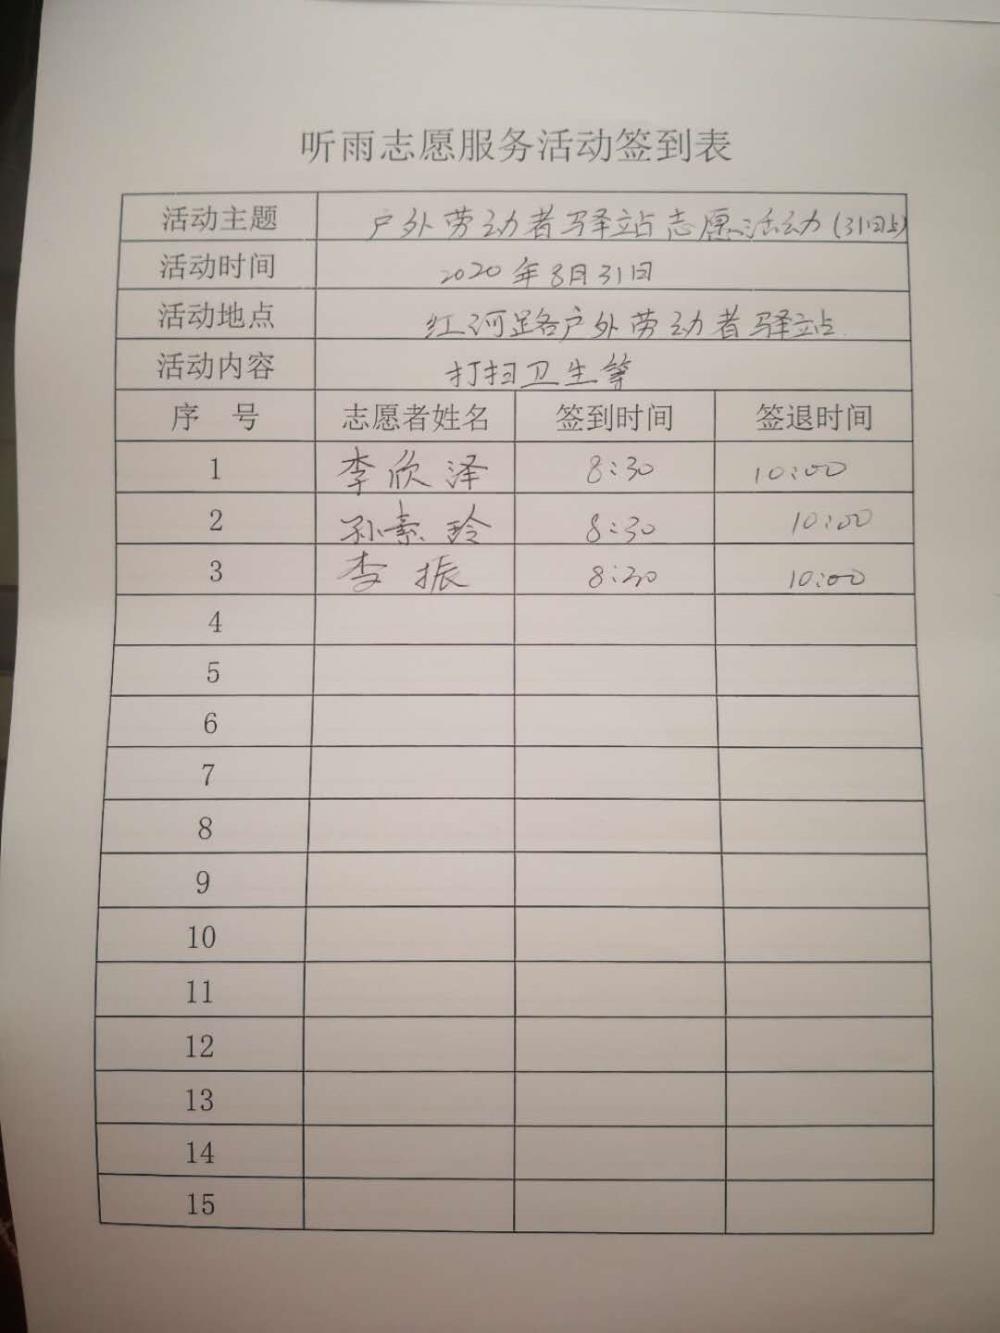 听雨志愿服务活动签到表
活动主题 户外劳动者驿站志愿活动(31日上)
活动时间 2020年8月31日
活动地点 红河路户外劳动者驿站
活动内容 打扫卫生等
序 号 志愿者姓名 签到时间 签退时间
1 李欣泽 8:30 10:00
2 孙素玲 8:30 10:00
3 李振 8:30 10:00
4
5
6
7
8
9
10
11
12
13
14
15